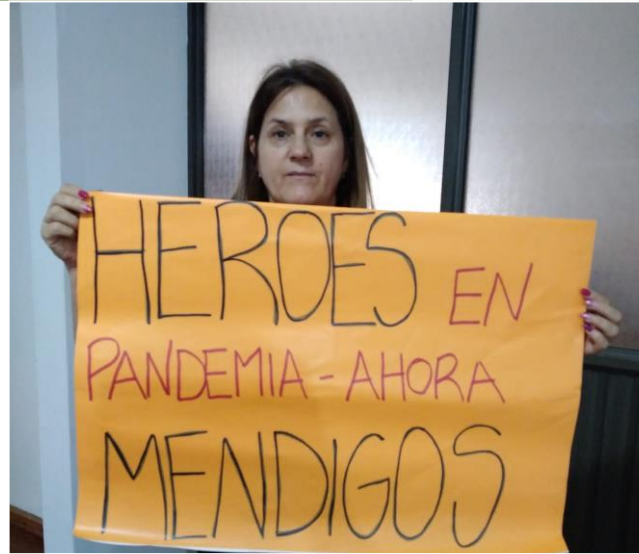 HEROES EN
PANDEMIA - AHORA
MENDIGOS